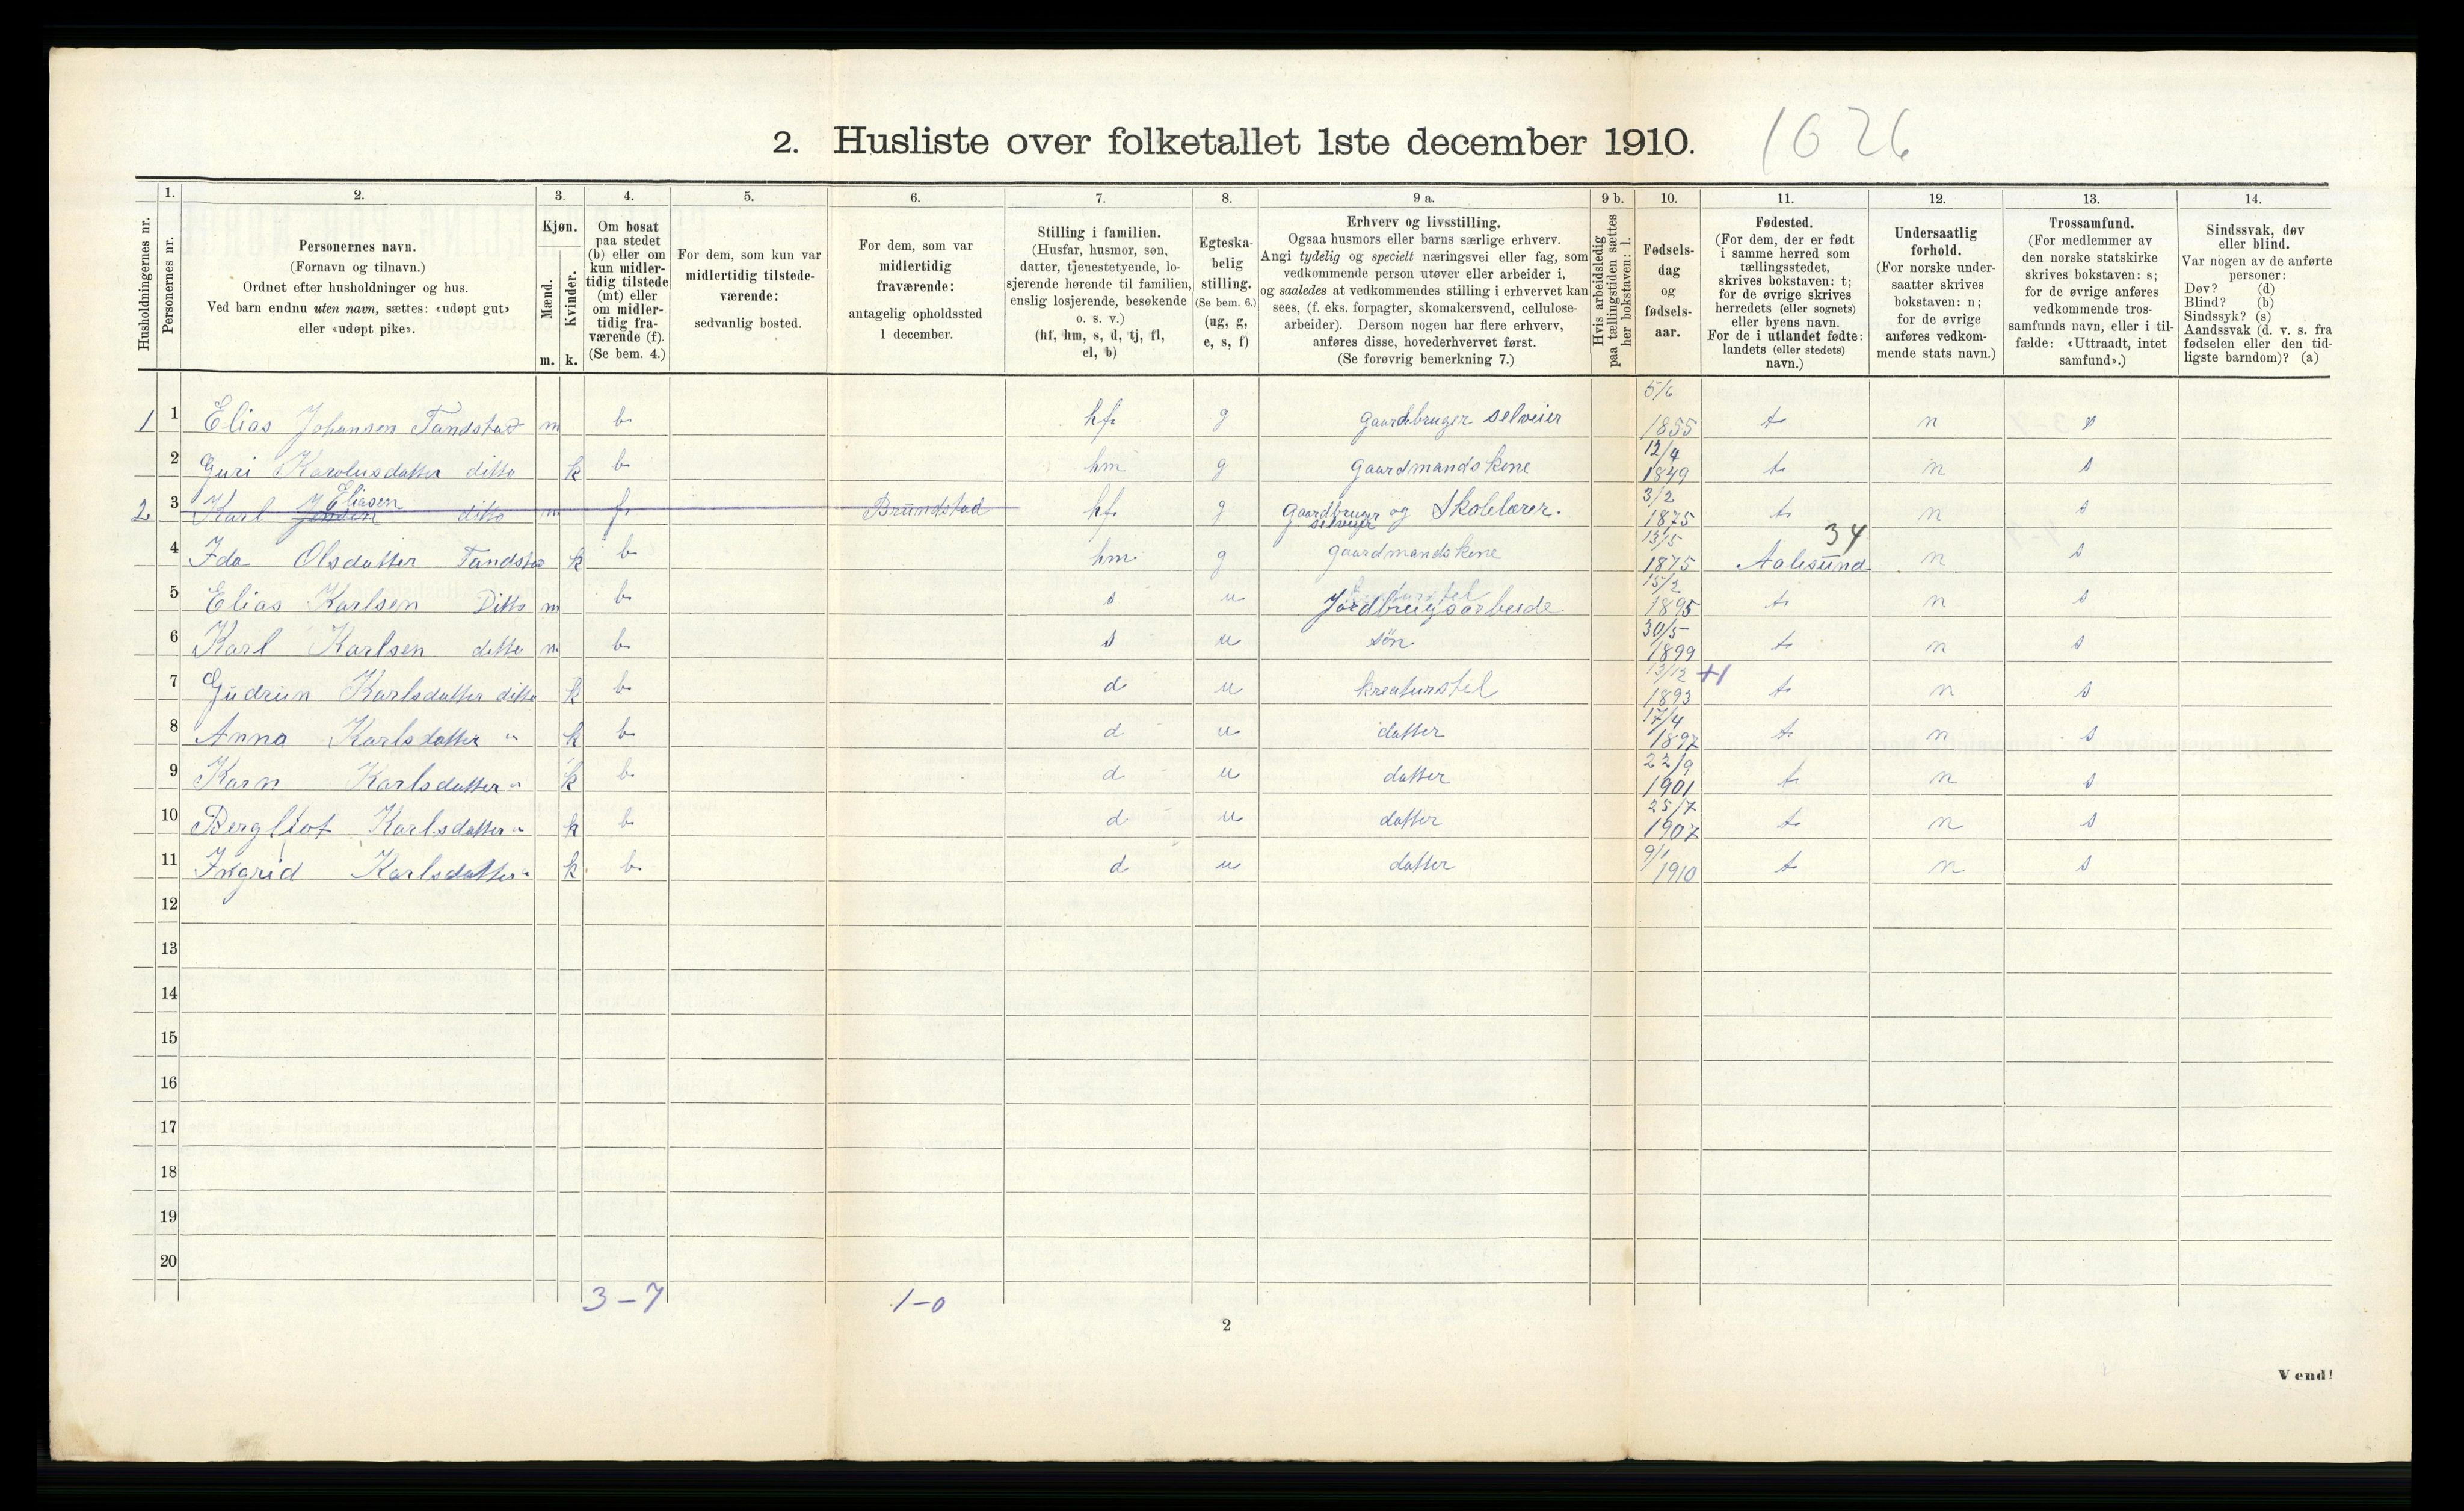 2. Husliste over folketallet 1ste december 1910. 1626
Husholdningernes nr.
1.
Personernes nr.
2.
Personernes navn.
(Fornavn og tilnavn.)
Ordnet efter husholdninger og hus.
Ved barn endnu uten navn, sættes: «udøpt gut»
eller «udøpt pike».
3.
Kjøn.
Mænd.
Kvinder.
m. k.
4.
Om bosat
paa stedet
(b) eller om
kun midler-
tidig tilstede
(mt) eller
om midler-
tidig fra-
værende (f).
(Se bem. 4.)
5.
For dem, som kun var
midlertidig tilstede-
værende:
sedvanlig bosted.
6.
For dem, som var
midlertidig
fraværende:
antagelig opholdssted
1 december.
7.
Stilling i familien.
(Husfar, husmor, søn,
datter, tjenestetyende, lo-
sjerende hørende til familien,
enslig losjerende, besøkende
o. s. v.)
(hf, hm, s, d, tj, fl,
el, b)
8.
Egteska-
belig
stilling.
(Se bem. 6.)
(ug, g,
e, s, f)
9 a.
Erhverv og livsstilling.
Ogsaa husmors eller barns særlige erhverv.
Angi tydelig og specielt næringsvei eller fag, som
vedkommende person utøver eller arbeider i,
og saaledes at vedkommendes stilling i erhvervet kan
sees, (f. eks. forpagter, skomakersvend, cellulose-
arbeider). Dersom nogen har flere erhverv,
anføres disse, hovederhvervet først.
(Se forøvrig bemerkning 7.)
9 b.
Hvis arbeidsledig
paa tællingstiden sættes
her bokstaven: l.
10.
Fødsels-
dag
og
fødsels-
aar.
11.
Fødested.
(For dem, der er født
i samme herred som
tællingsstedet,
skrives bokstaven: t;
for de øvrige skrives
herredets (eller sognets)
eller byens navn.
For de i utlandet fødte:
landets (eller stedets)
navn.)
12.
Undersaatlig
forhold.
(For norske under-
saatter skrives
bokstaven: n;
for de øvrige
anføres vedkom-
mende stats navn.)
13.
Trossamfund.
(For medlemmer av
den norske statskirke
skrives bokstaven: s;
for de øvrige anføres
vedkommende tros-
samfunds navn, eller i til-
fælde: «Uttraadt, intet
samfund».)
14.
Sindssvak, døv
eller blind.
Var nogen av de anførte
personer:
Døv? (d)
Blind? (b)
Sindssyk? (s)
Aandssvak (d. v. s. fra
fødselen eller den tid-
ligste barndom)? (a)
1 1 Elias Johansen Tandstad m b hf g gaardbruger selveier 5/6 1855 t n s
2 Guri Karolusdatter ditto k b hm g gaardmandskone 12/4 1849 t n s
2 3 Karl Jensen Eliasen ditto m f Brundstad hf g Gaardbruger selveier og Skolelærer. 3/2 1875 t n s
4 Ida Olsdatter Tandstad k b hm g gaardmandskone 13/5 1875 Aalesund 34 n s
5 Elias Karlsen Ditto m b s u Jordbrugsarbeide 15/2 1895 t n s
6 Karl Karlsen ditto m b s u søn 30/5 1899 t n s
7 Gudrun Karlsdatter ditto k b d u kreaturstel 13/12 1893 +1 t n s
8 Anna Karlsdatter " k b d u datter 17/4 1897 t n s
9 Karn Karlsdatter " k b d u datter 22/9 1901 t n s
10 Bergliot Karlsdatter " k b d u datter 25/7 1907 t n s
11 Ingrid Karlsdatter " k b d u datter 9/1 1910 t n s
12
13
14
15
16
17
18
19
20
3-7 1-0
2
Vend!